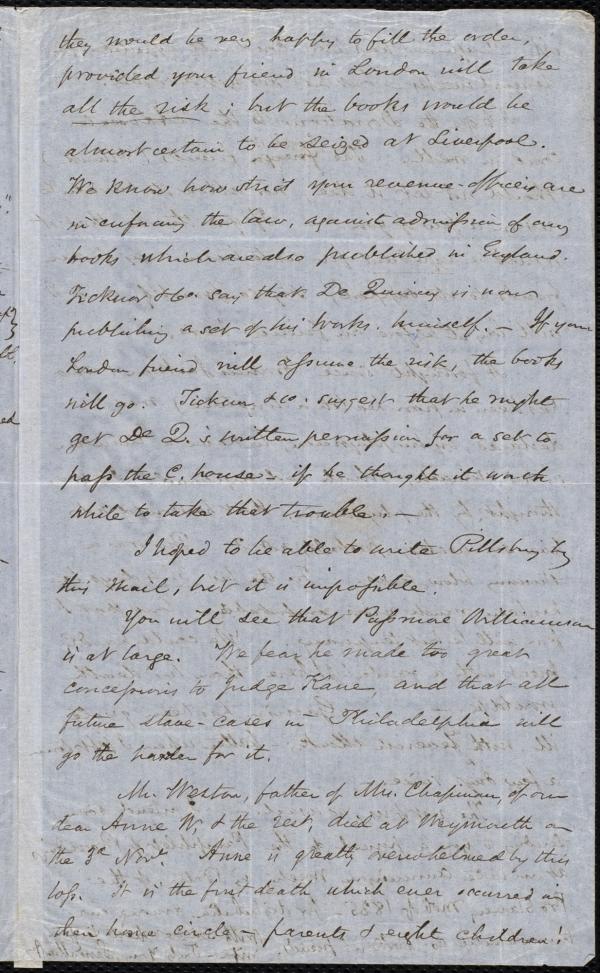 they would be very happy to fill the order,
provided your friend in London will take
all the risk; but the books would be
almost certain to be seized at Liverpool.
We know how strict your revenue-officers are
in enforcing the law, against admission of any
books which are also published in England.
Ticknor & Co. say that De Quincey is now
publishing a set of his works himself. — If your
London friend will assume the risk, the books
will go. Ticknor & Co. suggest that he might
get De Q.'s written permission for a set to
pass the C. house — if he thought it worth
while to take that trouble. —
I hoped to be able to write Pillsbury by
this mail, but it is impossible.
You will see that Passmore Williamson
is at large. We fear he made too great
concessions to Judge Kane, and that all
future slave-cases in Philadelphia will
go the harder for it.
Mr. Weston, father of Mrs. Chapman, of our
dear Anne W, & the rest, died at Weymouth on
the 3d Novr. Anne is greatly overwhelmed by this
loss. It is the first death which ever occurred in
their home circle — parents & eight children!